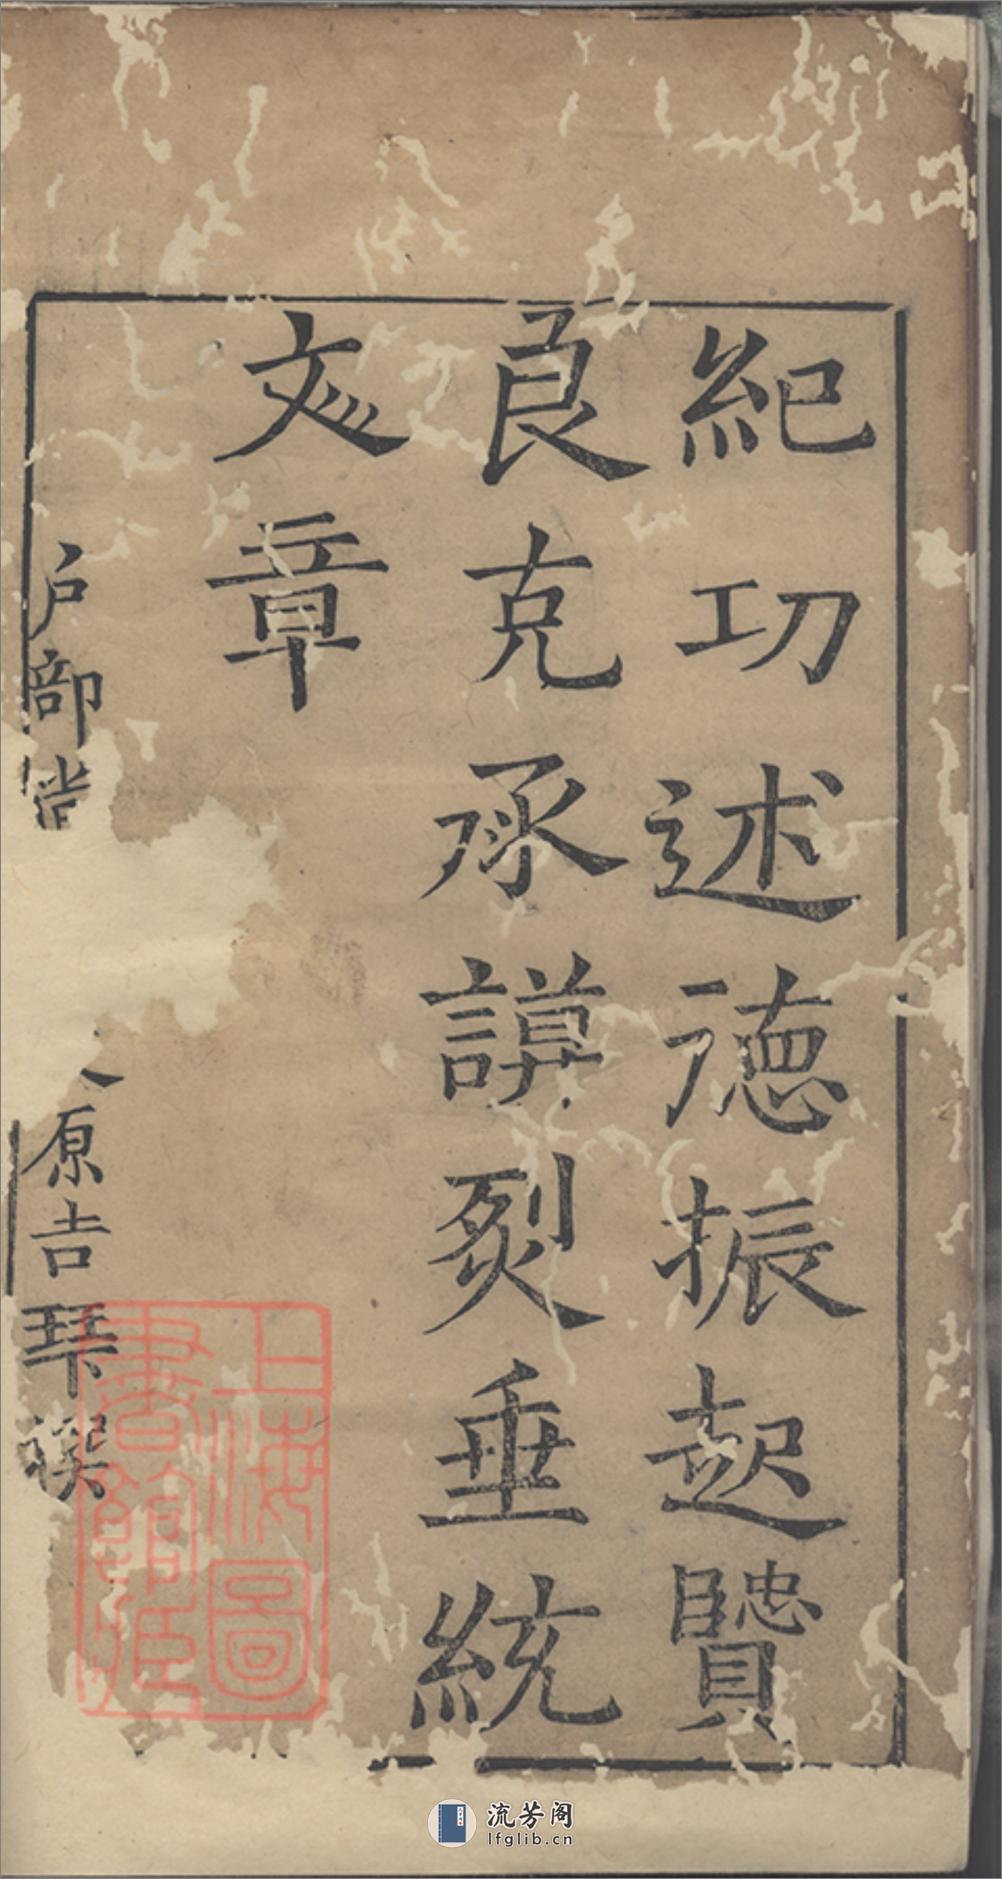 紀功述徳振起贒
良克承謨烈垂統
彣章
户部尚 原吉 撰
上海圖
書館藏
流芳阁
lfglib.cn